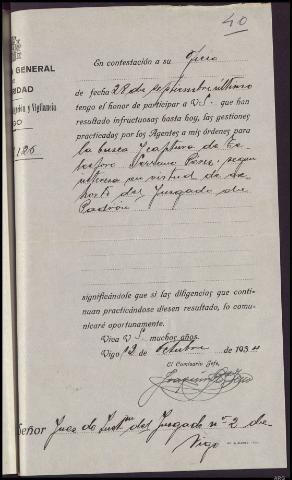 40
GENERAL
En contestación a su Oficio
RIDAD
de fecha 28 de septiembre último
y Vigilancia
tengo el honor de participar a V S. que han
GO
resultado infructuosas hasta hoy, las gestiones
practicadas por los Agentes a mis órdenes para
126
la busca y captura de
Serrano Pérez, según
interesa en virtud de
del Juzgado de
Padrón
significándole que si las diligencias que conti-
nuan practicándose diesen resultado, lo comu-
nicaré oportunamente.
Viva V S. muchos años.
Vigo 12 de Octubre de 1934
El Comisario Jefe,
Señor Juez de del Juzgado nº 2 de
Vigo